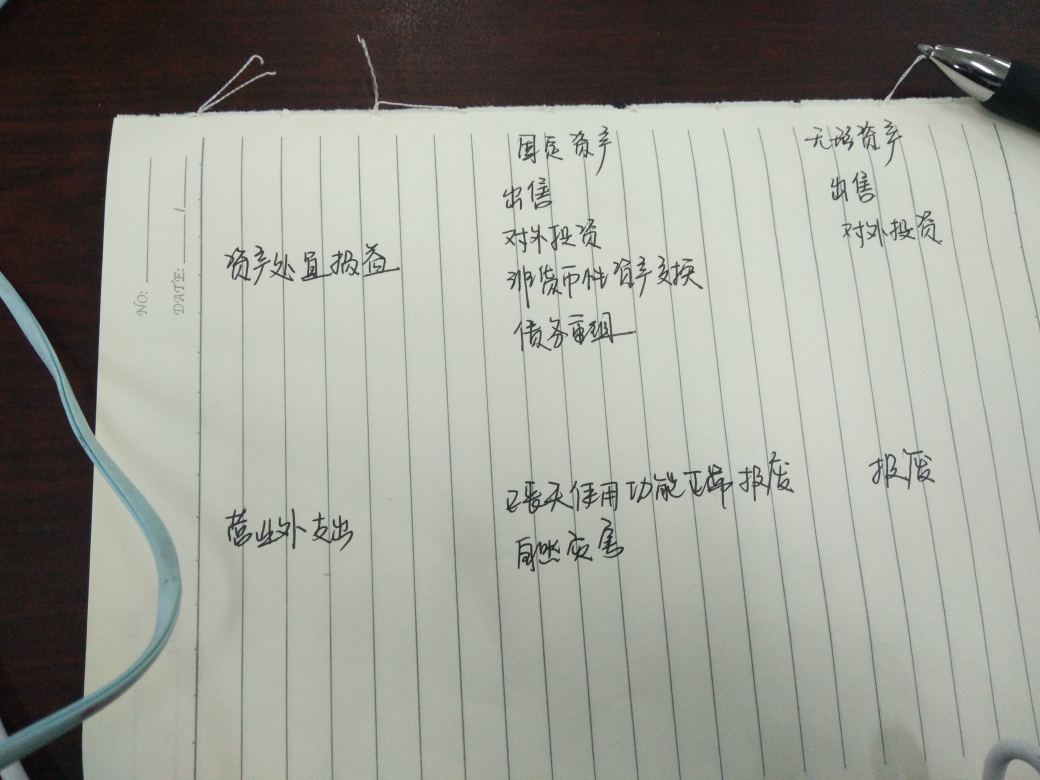 固定资产 无形资产
出售 出售
对外投资 对外投资
资产处置损益
非货币性资产交换
债务重组
已丧失使用功能正常报废 报废
营业外支出
自然灾害
NO:
DATE: /